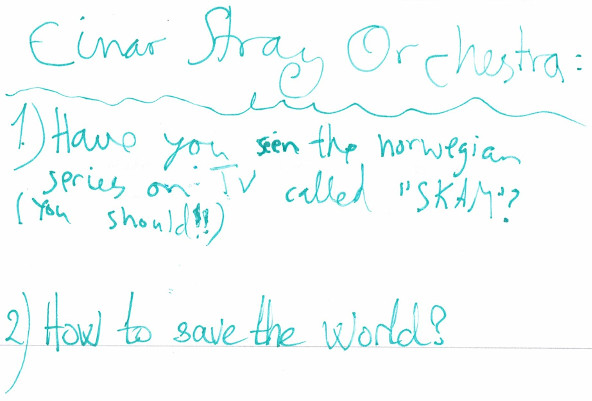 Einar Stray Orchestra:
1.) Have you seen the norwegian
series on TV called "SKAM"?
(You should!!)
2) How to save the world?